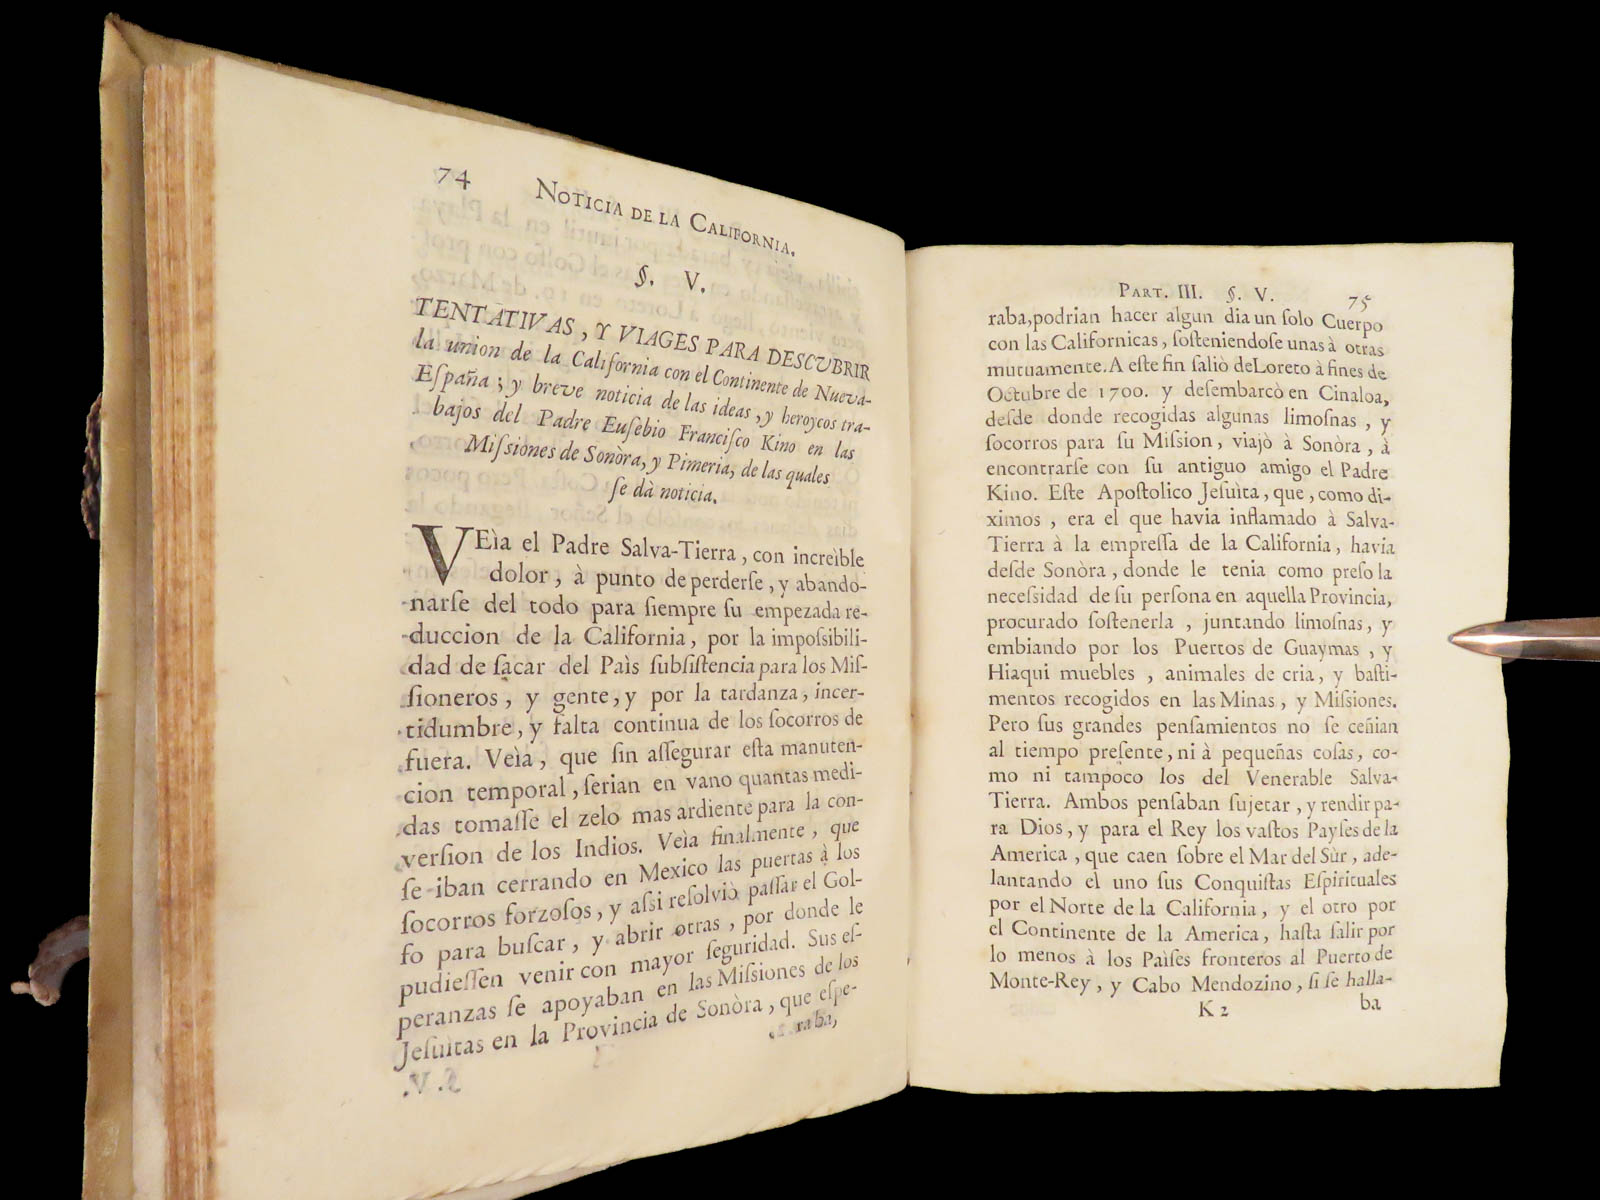 74 NOTICIA DE LA CALIFORNIA.
§. V.
TENTATIVAS, Y VIAGES PARA DESCVBRIR
la union de la California con el Continente de Nueva-
Eſpaña; y breve noticia de las ideas, y heroycos tra-
bajos del Padre Euſebio Franciſco Kino en las
Miſsiones de Sonòra, y Pimeria, de las quales
ſe dà noticia.
VEìa el Padre Salva-Tierra, con increìble
dolor, à punto de perderſe, y abando-
narſe del todo para ſiempre ſu empezada re-
duccion de la California, por la impoſsibili-
dad de ſacar del Paìs ſubſiſtencia para los Miſ-
ſioneros, y gente, y por la tardanza, incer-
tidumbre, y falta continua de los ſocorros de
fuera. Veìa, que ſin aſſegurar eſta manuten-
cion temporal, ſerian en vano quantas medi-
das tomaſſe el zelo mas ardiente para la con-
verſion de los Indios. Veìa finalmente, que
ſe iban cerrando en Mexico las puertas à los
ſocorros forzoſos, y aſsi reſolviò paſſar el Gol-
fo para buſcar, y abrir otras, por donde le
pudieſſen venir con mayor ſeguridad. Sus eſ-
peranzas ſe apoyaban en las Miſsiones de los
Jeſuitas en la Provincia de Sonòra, que eſpe-
raba,
PART. III. §. V. 75
raba, podrian hacer algun dia un ſolo Cuerpo
con las Californicas, ſoſteniendoſe unas à otras
mutuamente. A eſte fin ſaliò de Loreto à fines de
Octubre de 1700. y deſembarcò en Cinaloa,
deſde donde recogidas algunas limoſnas, y
ſocorros para ſu Miſsion, viajò à Sonòra, à
encontrarſe con ſu antiguo amigo el Padre
Kino. Eſte Apoſtolico Jeſuìta, que, como di-
ximos, era el que havia inflamado à Salva-
Tierra à la empreſſa de la California, havia
deſde Sonòra, donde le tenia como preſo la
neceſsidad de ſu perſona en aquella Provincia,
procurado ſoſtenerla, juntando limoſnas, y
embiando por los Puertos de Guaymas, y
Hiaqui muebles, animales de cria, y baſti-
mentos recogidos en las Minas, y Miſsiones.
Pero ſus grandes penſamientos no ſe ceñian
al tiempo preſente, ni à pequeñas coſas, co-
mo ni tampoco los del Venerable Salva-
Tierra. Ambos penſaban ſujetar, y rendir pa-
ra Dios, y para el Rey los vaſtos Payſes de la
America, que caen ſobre el Mar del Sùr, ade-
lantando el uno ſus Conquiſtas Eſpirituales
por el Norte de la California, y el otro por
el Continente de la America, haſta ſalir por
lo menos à los Paìſes fronteros al Puerto de
Monte-Rey, y Cabo Mendozino, ſi ſe halla-
K 2 ba